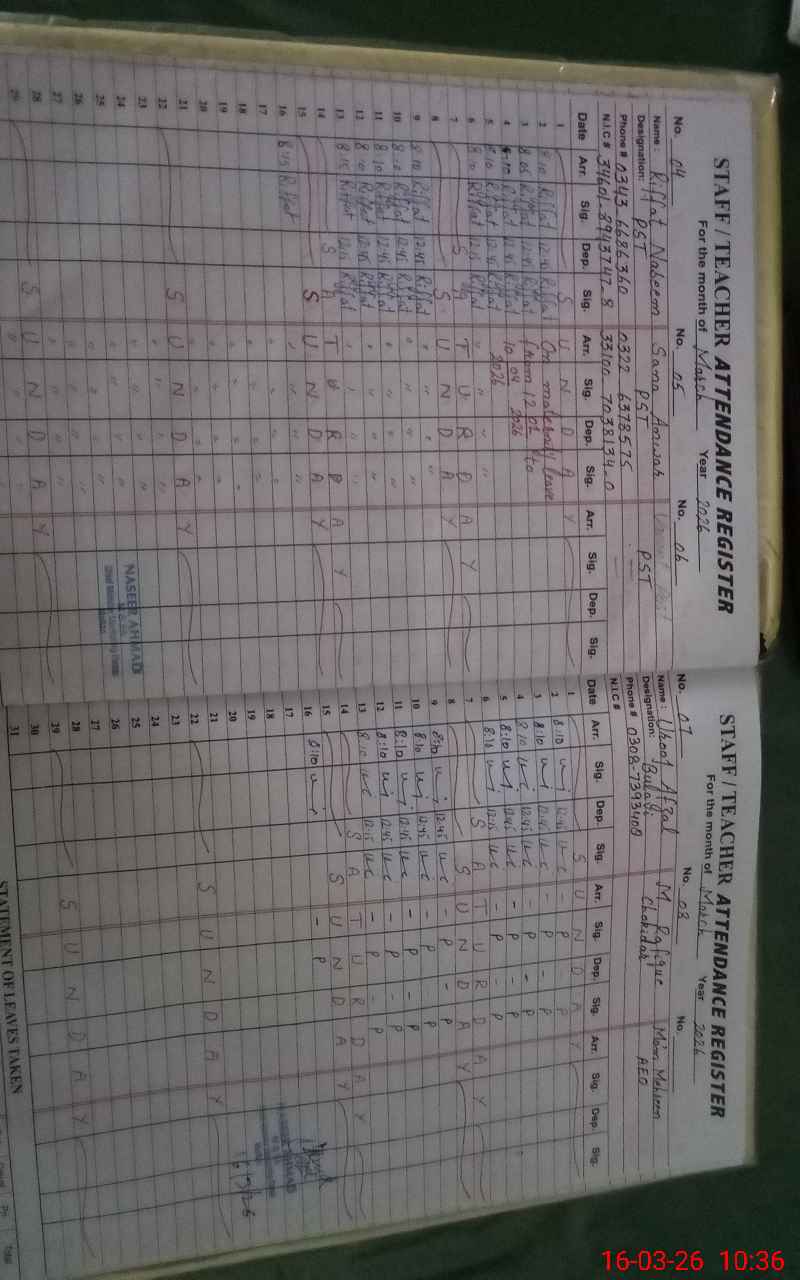 STAFF / TEACHER ATTENDANCE REGISTER
For the month of March Year 2026
No. 04 No. 05 No. 06
Name: Riffat Naheem Sana
Designation: PST PST PST
Phone # 0343 6686360 0322 6378575
N.I.C # 34601-8943747-8 33100 7038134-0
Date Arr. Sig. Dep. Sig. Arr. Sig. Dep. Sig. Arr. Sig. Dep. Sig.
1 S U N D A Y
2 8:10 Riffat 12:45 Riffat On leave
3 8:05 Riffat 12:45 Riffat from 12 01 to
4 8:10 Riffat 12:45 Riffat 10 04 2026
5 8:10 Riffat 12:45 Riffat 2026
6 8:10 Riffat 12:15 Riffat
7 S A T U R D A Y
8 S U N D A Y
9 8:10 Riffat 12:45 Riffat
10 8:10 Riffat 12:45 Riffat
11 8:10 Riffat 12:45 Riffat
12 8:10 Riffat 12:45 Riffat
13 8:15 Riffat 12:15 Riffat
14 S A T U R D A Y
15 S U N D A Y
16 8:45 Riffat
17
18
19
20
21
22 S U N D A Y
23
24
25
26
27
28
29 S U N D A Y
NASEER AHMAD
STAFF / TEACHER ATTENDANCE REGISTER
For the month of March Year 2026
No. 07 No. 08 No.
Name: Afzal M. Rafique Mam Mehreen
Designation: Chokidar AEO
Phone # 0308-7393408
N.I.C #
Date Arr. Sig. Dep. Sig. Arr. Sig. Dep. Sig. Arr. Sig. Dep. Sig.
1 S U N D A Y
2 8:10 12:45 - P - P
3 8:10 12:45 - P - P
4 8:10 12:45 - P - P
5 8:10 12:45 - P - P
6 8:10 12:15 - P - P
7 S A T U R D A Y
8 S U N D A Y
9 8:10 12:45 - P - P
10 8:10 12:45 - P - P
11 8:10 12:45 - P - P
12 8:10 12:45 - P - P
13 8:10 12:15 - P - P
14 S A T U R D A Y
15 S U N D A Y
16 8:10 - P
17
18
19
20
21
22 S U N D A Y
23
24
25
26
27
28
29 S U N D A Y
30
31
STATEMENT OF LEAVES TAKEN
16-03-26 10:36